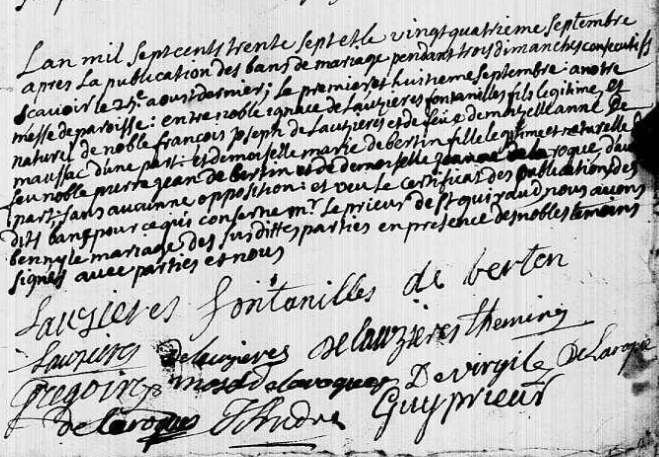 Lan mil sept cents trente sept et le vingt quatrieme septembre
apres La publication des bans de mariage pendant trois dimanches consecutifs
scavoir le 25e aoust dernier; le premier et huitieme septembre: a notre
messe de paroisse: entre noble ignace de Lauzieres fontanilles fils legitime et
naturel de noble francois joseph de Lauzieres et de feüe demoiselle anne de
maussac d'une part: et demoiselle marie de bertin fille legitime et naturelle de
feu noble pierre jean de bertin et de demoiselle jeanne de la roque, d'autre
part, sans aucunne opposition: et veu le certificat des publications des
dits bans pour ce qui conserne mr. le prieur de St quiraud nous avons
beny le mariage des susdittes parties en presence des nobles temoins
signes avec parties et nous
Lauzieres fontanilles de berten
Lauzieres delauzieres de lauzieres themines
Gregoire delaroque De virgile De Laroque
de laroque Guy prieur